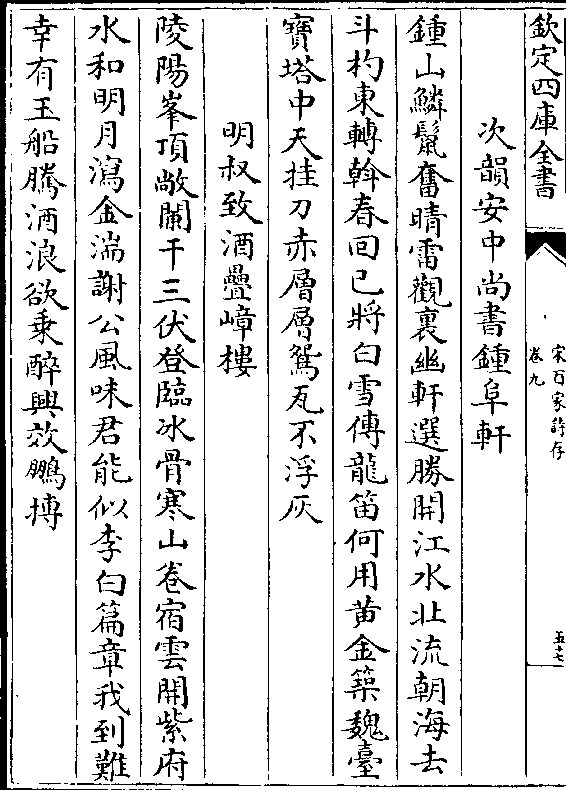 欽定四庫全書
宋百家詩存
卷九
五十七
次韻安中尚書鍾阜軒
鍾山鱗鬣奮晴雷觀裏幽軒選勝開江水北流朝海去
斗杓東轉斡春回已將白雪傳龍笛何用黄金築魏臺
寶塔中天挂刀赤層層鴛瓦不浮灰
明叔致酒疊嶂樓
陵陽峯頂敞闌干三伏登臨冰骨寒山卷宿雲開紫府
水和明月瀉金湍謝公風味君能似李白篇章我到難
幸有玉船騰酒浪欲乗醉興效鵬摶